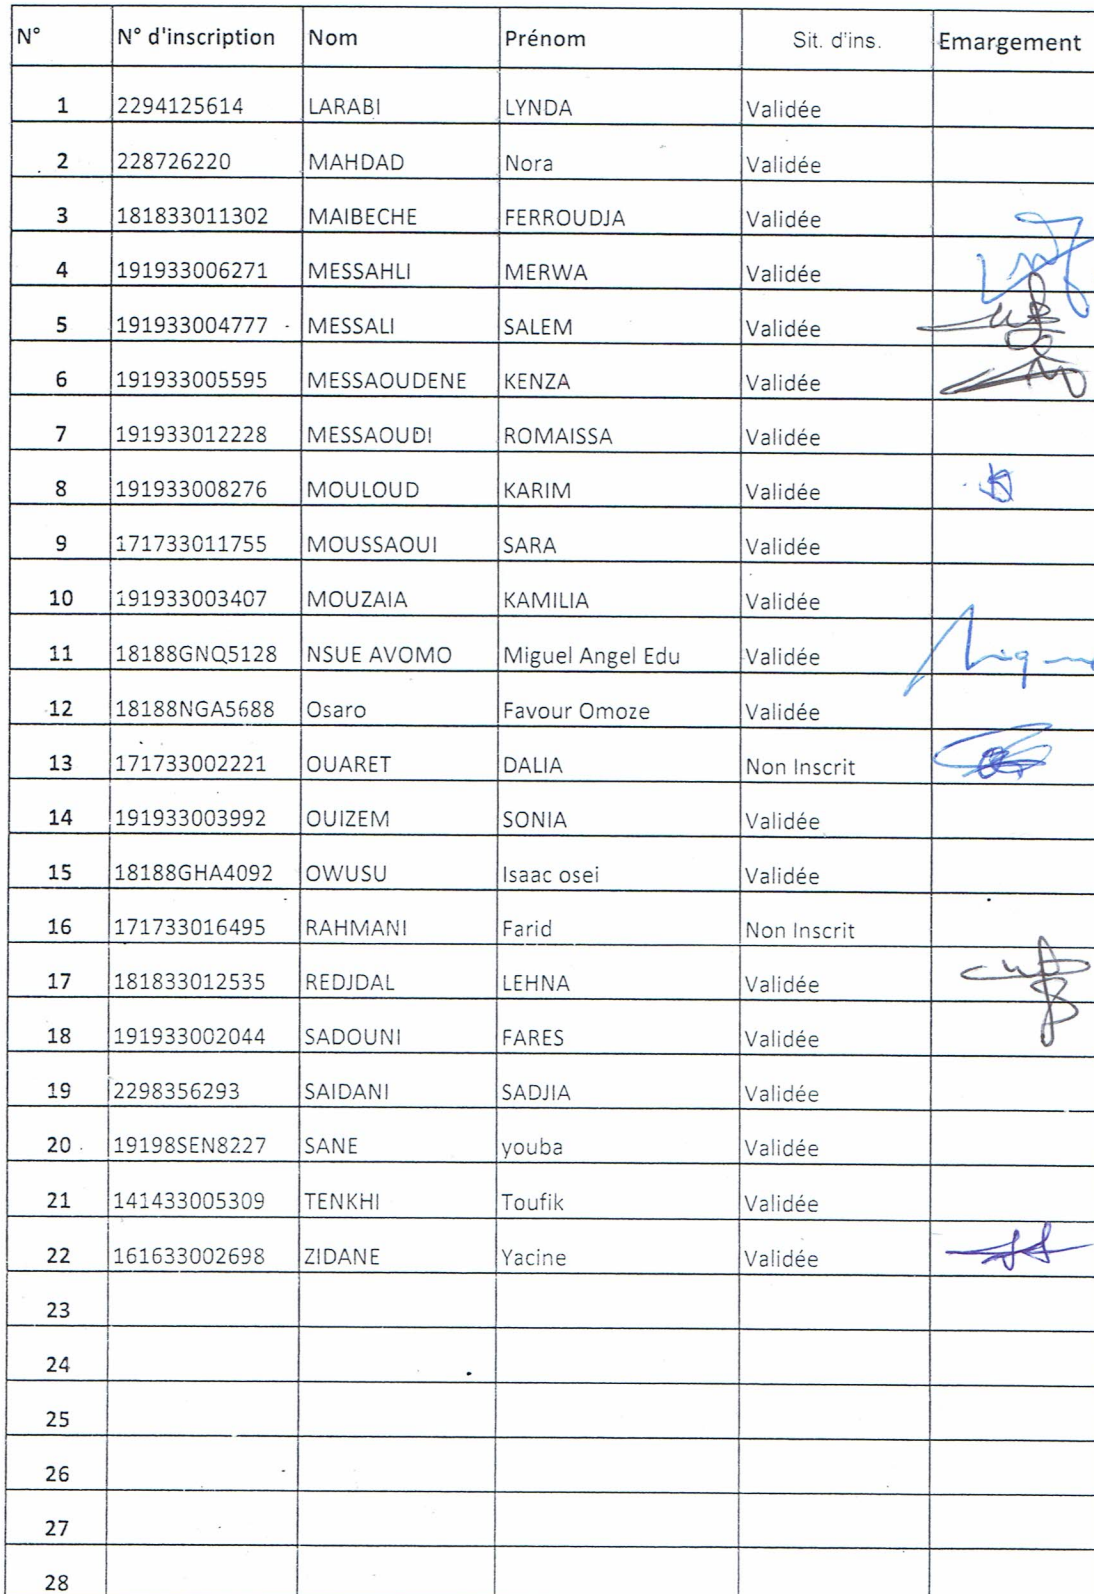 N° N° d'inscription Nom Prénom Sit. d'ins. Emargement
1 2294125614 LARABI LYNDA Validée
2 228726220 MAHDAD Nora Validée
3 181833011302 MAIBECHE FERROUDJA Validée
4 191933006271 MESSAHLI MERWA Validée
5 191933004777 MESSALI SALEM Validée
6 191933005595 MESSAOUDENE KENZA Validée
7 191933012228 MESSAOUDI ROMAISSA Validée
8 191933008276 MOULOUD KARIM Validée
9 171733011755 MOUSSAOUI SARA Validée
10 191933003407 MOUZAIA KAMILIA Validée
11 18188GNQ5128 NSUE AVOMO Miguel Angel Edu Validée
12 18188NGA5688 Osaro Favour Omoze Validée
13 171733002221 OUARET DALIA Non Inscrit
14 191933003992 OUIZEM SONIA Validée
15 18188GHA4092 OWUSU Isaac osei Validée
16 171733016495 RAHMANI Farid Non Inscrit
17 181833012535 REDJDAL LEHNA Validée
18 191933002044 SADOUNI FARES Validée
19 2298356293 SAIDANI SADJIA Validée
20 19198SEN8227 SANE youba Validée
21 141433005309 TENKHI Toufik Validée
22 161633002698 ZIDANE Yacine Validée
23
24
25
26
27
28